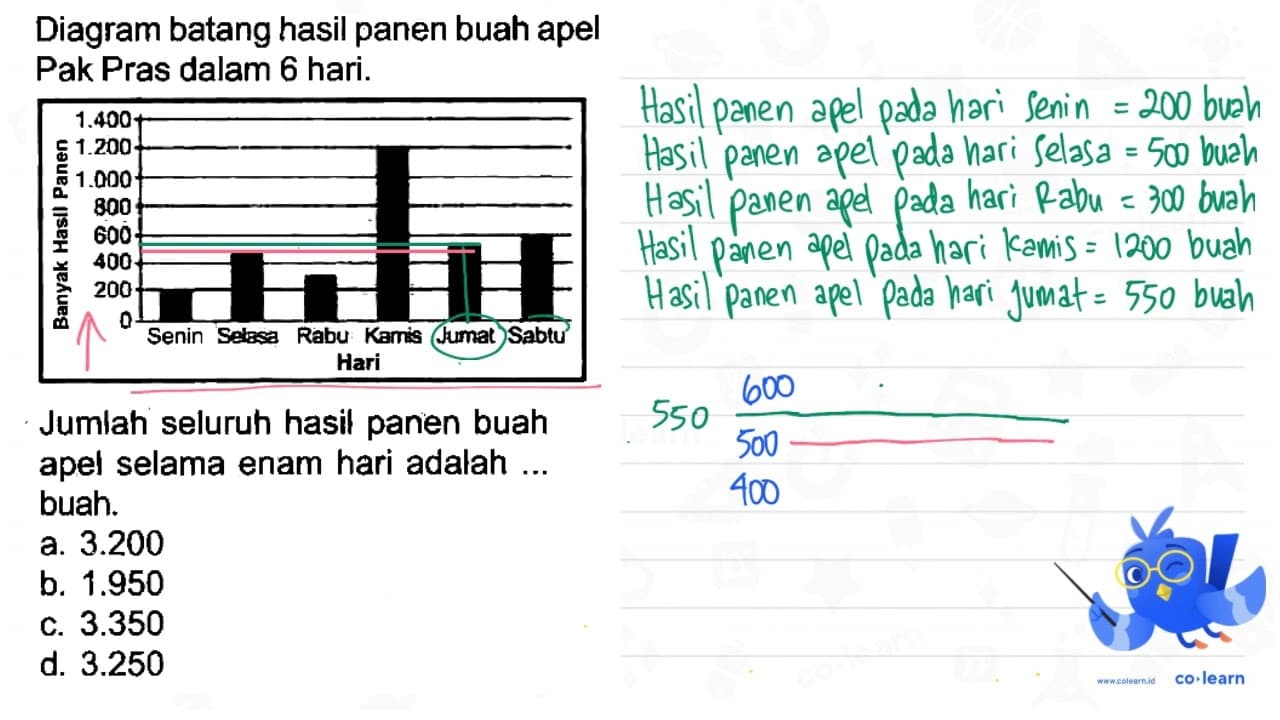 Diagram batang hasil panen buah apel
Pak Pras dalam 6 hari.
Banyak Hasil Panen
1.400
1.200
1.000
800
600
400
200
0
Senin Selasa Rabu Kamis Jumat Sabtu
Hari
Jumlah seluruh hasil panen buah
apel selama enam hari adalah ...
buah.
a. 3.200
b. 1.950
c. 3.350
d. 3.250
Hasil panen apel pada hari Senin = 200 buah
Hasil panen apel pada hari Selasa = 500 buah
Hasil panen apel pada hari Rabu = 300 buah
Hasil panen apel pada hari Kamis = 1200 buah
Hasil panen apel pada hari Jumat = 550 buah
600
550
500
400
www.colearn.id co·learn